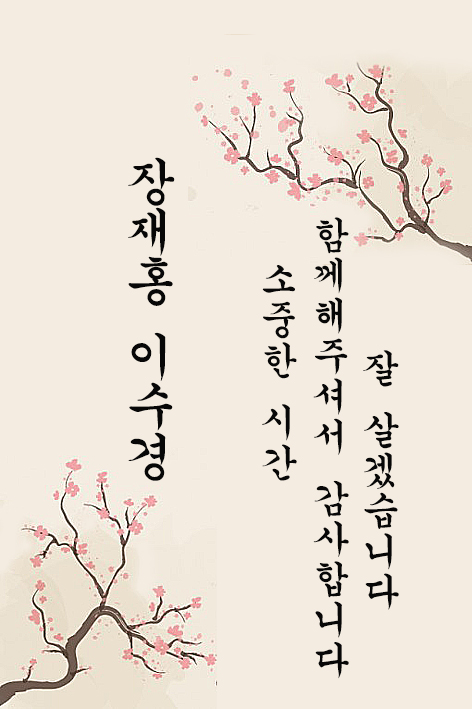 장재홍 이수경
소중한 시간
함께해주셔서 감사합니다
잘 살겠습니다